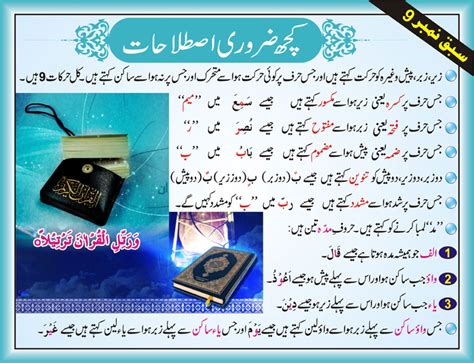 سبق نمبر 9
کچھ ضروری اصطلاحات
زیر، زبر، پیش وغیرہ کو حرکت کہتے ہیں اور جس حرف پر کوئی حرکت ہو اسے متحرک اور جس پر نہ ہو اسے ساکن کہتے ہیں۔ کل حرکات 9 ہیں۔
جس حرف پر کسرہ یعنی زیر ہو اسے مکسور کہتے ہیں جیسے سَمِعَ میں "میم"
جس حرف پر فتحہ یعنی زبر ہو اسے مفتوح کہتے ہیں جیسے نُصِرَ میں "ر"
جس حرف پر ضمہ یعنی پیش ہو اسے مضموم کہتے ہیں جیسے بَابُ میں "ب"
دو زبر، دو زیر، دو پیش کو تنوین کہتے ہیں جیسے بً (دو زبر) بٍ (دو زیر) بٌ (دو پیش)
جس حرف پر شد ہو اسے مشدد کہتے ہیں جیسے رَبّ میں "ب" کو مشدد کہیں گے۔
"مد" لمبا کرنے کو کہتے ہیں۔ حروف مدہ تین ہیں:
1 الف جو ہمیشہ مدہ ہوتا ہے جیسے قَالَ۔
2 واؤ جب ساکن ہو اور اس سے پہلے پیش ہو جیسے اَعُوْذُ۔
3 یاء جب ساکن ہو اور اس سے پہلے زیر ہو جیسے دِیْنَ۔
جس واؤ ساکن سے پہلے زبر ہو اسے واؤ لین کہتے ہیں جیسے یَوْمَ اور جس یاء ساکن سے پہلے زبر ہو اسے یاء لین کہتے ہیں جیسے غَیْرَ۔
القرآن الكريم
وَرَتِّلِ الْقُرْاٰنَ تَرْتِيْلًا